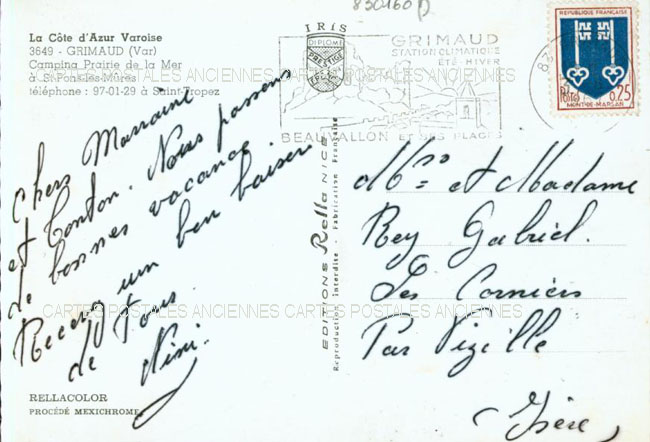 830160p
La Côte d'Azur Varoise
3649 - GRIMAUD (Var)
Camping Prairie de la Mer
à St-Pons-les-Mûres
téléphone : 97-01-29 à Saint-Tropez
IRIS
DIPLOME
PRESTIGE
GRIMAUD
STATION CLIMATIQUE
ÉTÉ HIVER
BEAUVALLON ET SES PLAGES
83
REPUBLIQUE FRANÇAISE
POSTES
0,25
MONT-DE-MARSAN
CARTES POSTALES ANCIENNES CARTES POSTALES ANCIENNES
chers Marraine
et Tonton. Nous passons
de bonnes vacance
Recevez um bon baiser
de Tous
Nini.
EDITIONS Rella NICE
Reproduction Interdite - Fabrication Française
Mr et Madame
Rey Gabriel.
Les Corniers
Par Vizille
(Isère)
CARTES POSTALES ANCIENNES CARTES POSTALES ANCIENNES
RELLACOLOR
PROCÉDÉ MEXICHROME